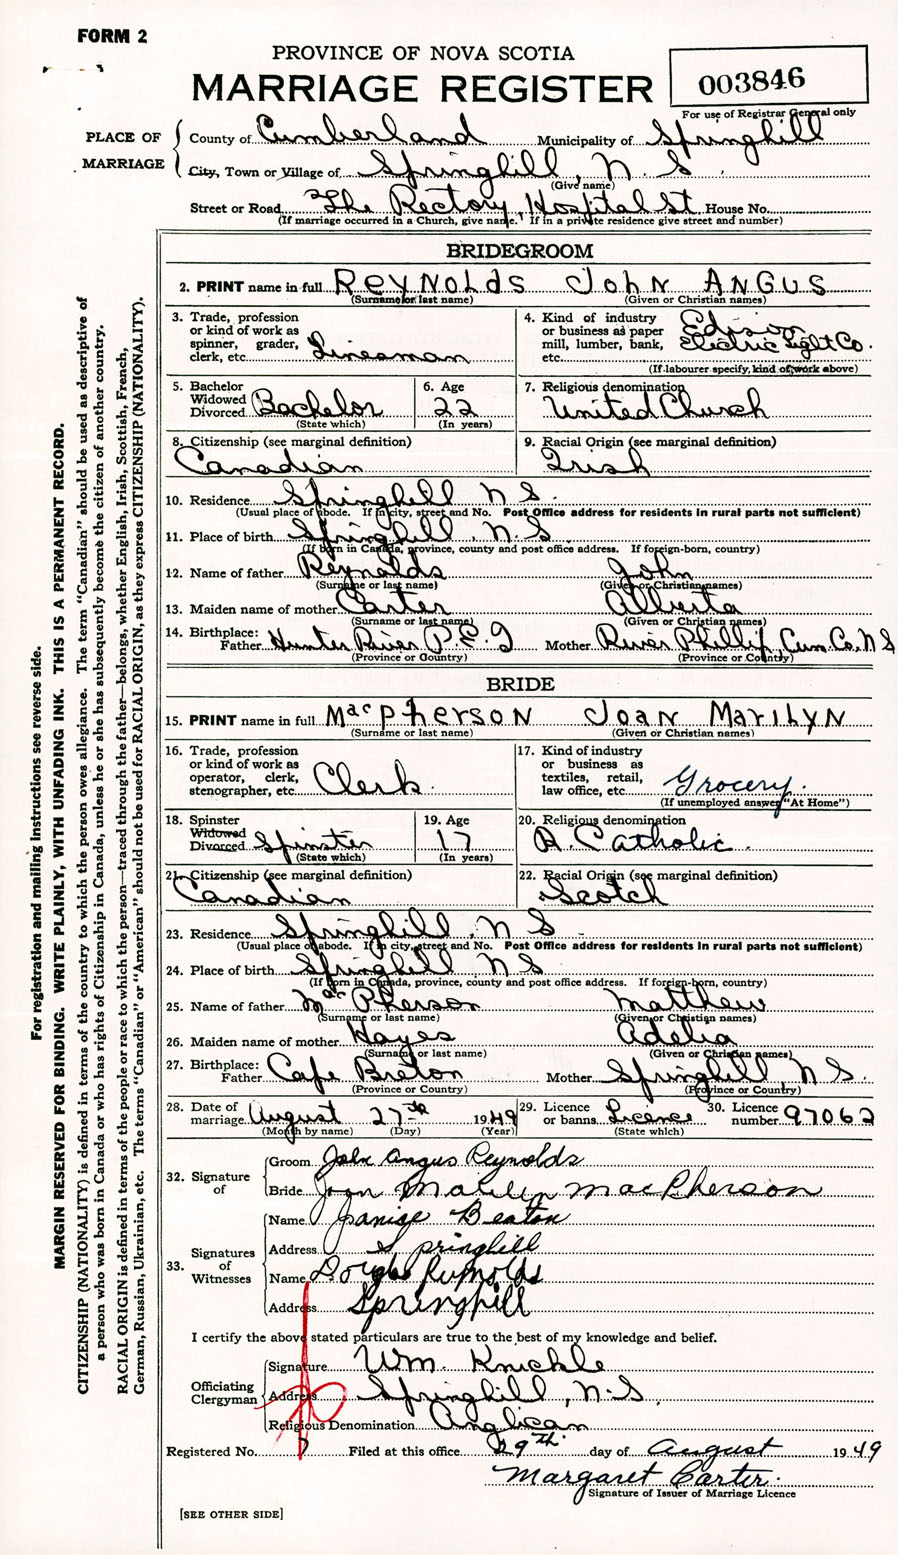 FORM 2
PROVINCE OF NOVA SCOTIA
MARRIAGE REGISTER
003846
For use of Registrar General only
PLACE OF MARRIAGE
County of Cumberland Municipality of Springhill
City, Town or Village of Springhill, N.S.
(Give name)
Street or Road The Rectory, Hospital St House No.
(If marriage occurred in a Church, give name. If in a private residence give street and number)
BRIDEGROOM
2. PRINT name in full REYNOLDS JOHN ANGUS
(Surname or last name) (Given or Christian names)
3. Trade, profession or kind of work as spinner, grader, clerk, etc. Linesman
4. Kind of industry or business as paper mill, lumber, bank, etc. Edison Electric Light Co.
(If labourer specify, kind of work above)
5. Bachelor Widowed Divorced Bachelor
(State which)
6. Age 22
(In years)
7. Religious denomination United Church
8. Citizenship (see marginal definition) Canadian
9. Racial Origin (see marginal definition) Irish
10. Residence Springhill N S.
(Usual place of abode. If in city, street and No. Post Office address for residents in rural parts not sufficient)
11. Place of birth Springhill, N.S
(If born in Canada, province, county and post office address. If foreign-born, country)
12. Name of father Reynolds John
(Surname or last name) (Given or Christian names)
13. Maiden name of mother Carter Alberta
(Surname or last name) (Given or Christian names)
14. Birthplace: Father Hunter River P.E.I Mother River Phillip, Cum. Co. N S
(Province or Country) (Province or Country)
BRIDE
15. PRINT name in full MacPherson Joan Marilyn
(Surname or last name) (Given or Christian names)
16. Trade, profession or kind of work as operator, clerk, stenographer, etc. Clerk.
17. Kind of industry or business as textiles, retail, law office, etc. Grocery.
(If unemployed answer "At Home")
18. Spinster Widowed Divorced Spinster
(State which)
19. Age 17
(In years)
20. Religious denomination R. Catholic.
21. Citizenship (see marginal definition) Canadian
22. Racial Origin (see marginal definition) Scotch
23. Residence Springhill, N S
(Usual place of abode. If in city, street and No. Post Office address for residents in rural parts not sufficient)
24. Place of birth Springhill N S
(If born in Canada, province, county and post office address. If foreign-born, country)
25. Name of father MacPherson Matthew
(Surname or last name) (Given or Christian names)
26. Maiden name of mother Hayes Adelia
(Surname or last name) (Given or Christian names)
27. Birthplace: Father Cape Breton Mother Springhill N S.
(Province or Country) (Province or Country)
28. Date of marriage August 27th 1949
(Month by name) (Day) (Year)
29. Licence or banns. Licence
(State which)
30. Licence number 97062
32. Signature of
Groom John Angus Reynolds
Bride Joan Marilyn MacPherson
33. Signatures of Witnesses
Name Janice Beaton
Address Springhill
Name Reynolds
Address Springhill
I certify the above stated particulars are true to the best of my knowledge and belief.
Officiating Clergyman
Signature Wm. Knickle
Address Springhill, N.S
Religious Denomination Anglican
Registered No. 7 Filed at this office 29th day of August 1949
Margaret Carter.
Signature of Issuer of Marriage Licence
[SEE OTHER SIDE]
For registration and mailing instructions see reverse side.
MARGIN RESERVED FOR BINDING. WRITE PLAINLY, WITH UNFADING INK. THIS IS A PERMANENT RECORD.
CITIZENSHIP (NATIONALITY) is defined in terms of the country to which the person owes allegiance. The term "Canadian" should be used as descriptive of
a person who was born in Canada or who has rights of Citizenship in Canada, unless he or she has subsequently become the citizen of another country.
RACIAL ORIGIN is defined in terms of the people or race to which the person—traced through the father—belongs, whether English, Irish, Scottish, French,
German, Russian, Ukrainian, etc. The terms "Canadian" or "American" should not be used for RACIAL ORIGIN, as they express CITIZENSHIP (NATIONALITY).